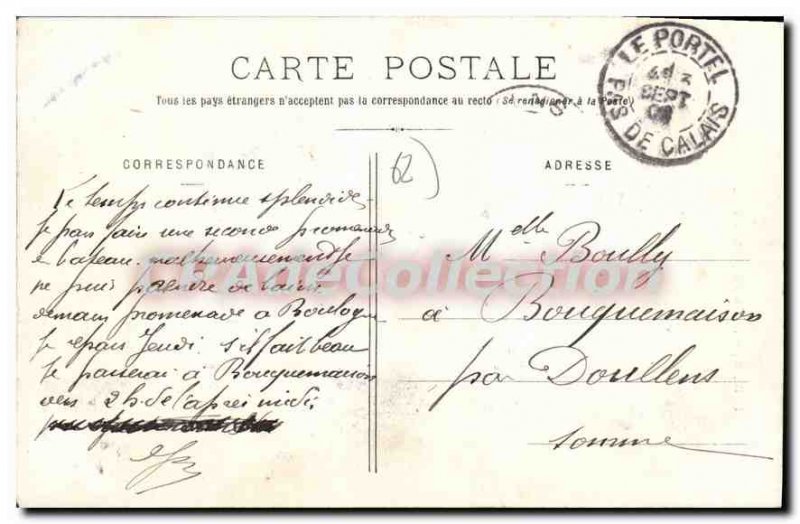 CARTE POSTALE
Tous les pays étrangers n'acceptent pas la correspondance au recto (Se renseigner à la Poste)
LE PORTEL
SEPT
PAS DE CALAIS
CORRESPONDANCE
ADRESSE
62
Le temps continue splendide
Je pars faire une seconde promenade
bateau malheureusement je
ne puis
demain promenade à Boulogne
Je repars Jeudi s'il fait beau
Je passerai à Bouquemaison
vers 2 h. de l'après midi
Melle Boully
à Bouquemaison
par Doullens
Somme
CPADeCollection